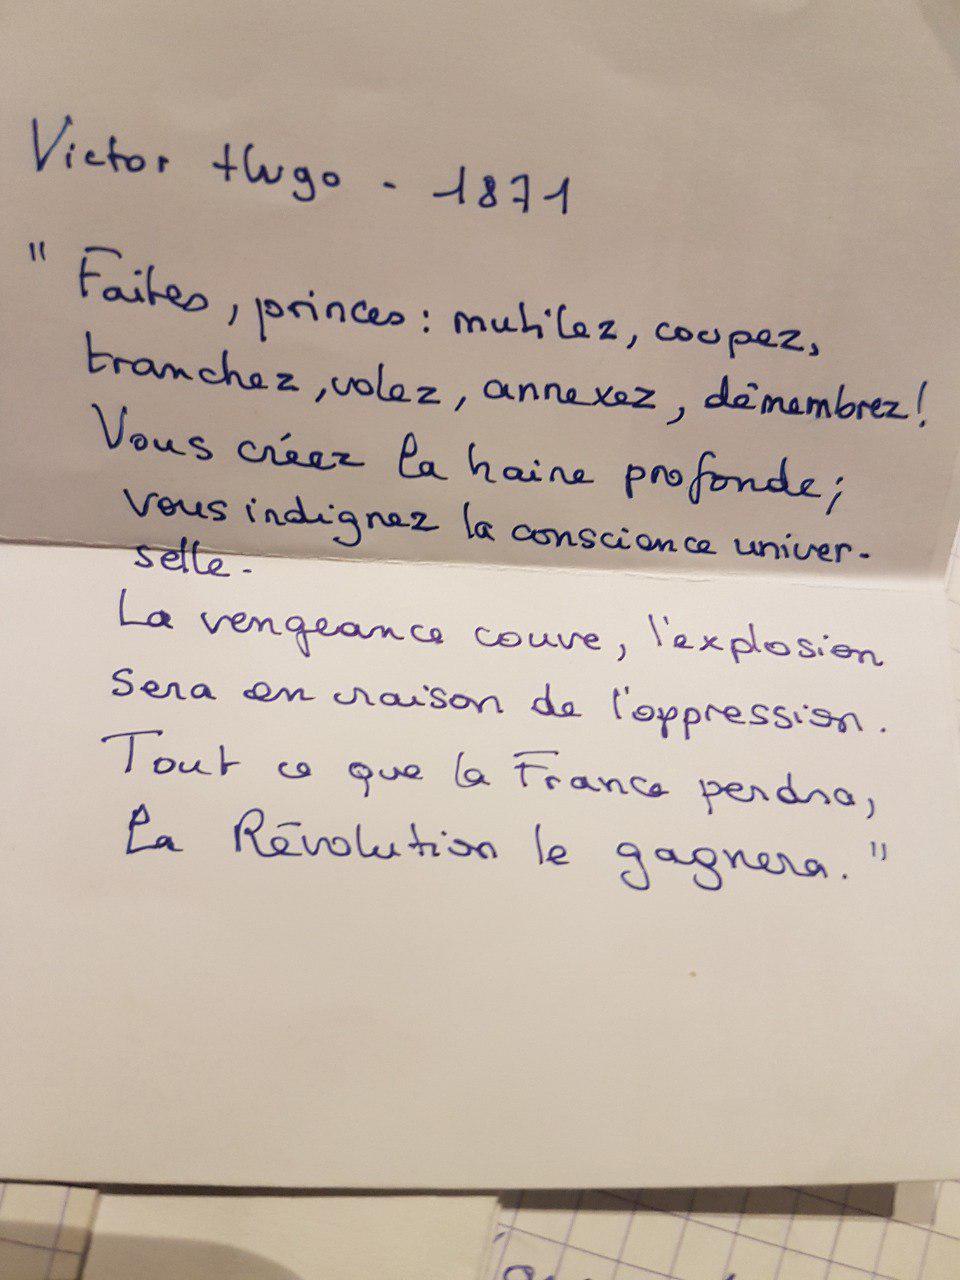 Victor Hugo - 1871
" Faites, princes : mutilez, coupez,
tranchez, volez, annexez, démembrez !
Vous créez la haine profonde ;
vous indignez la conscience univer-
selle.
La vengeance couve, l'explosion
sera en raison de l'oppression.
Tout ce que la France perdra,
La Révolution le gagnera. "